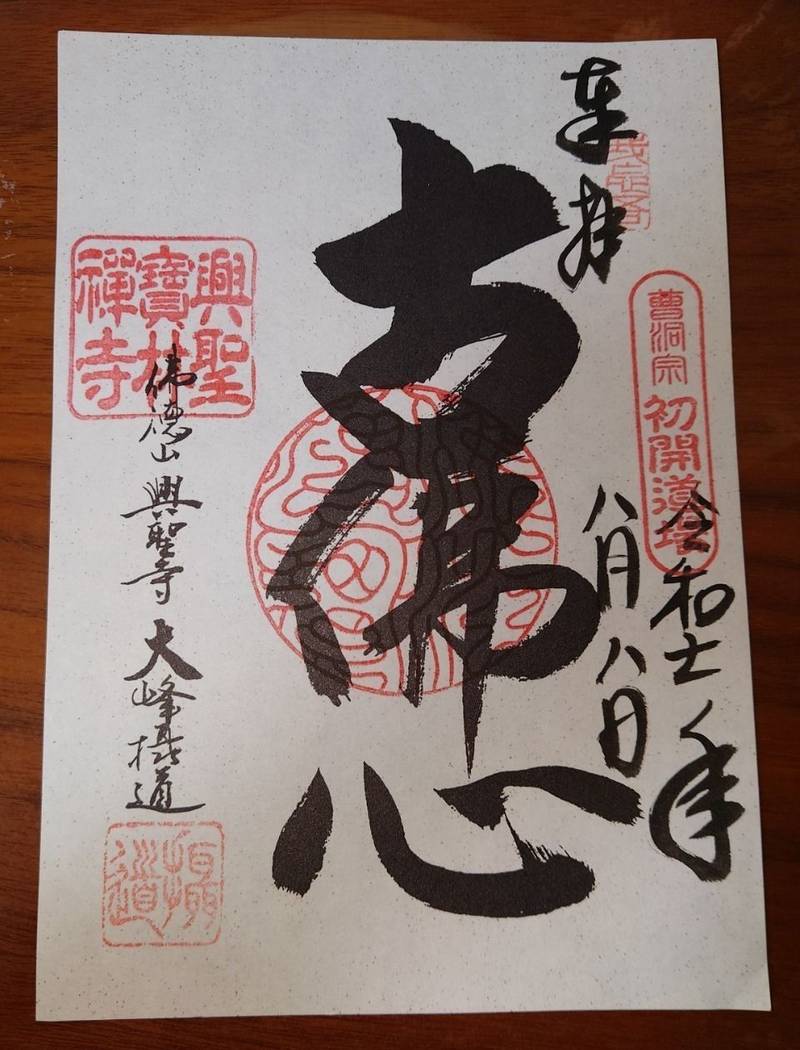 奉拝
曹洞宗 初開道場
令和 年
八月八日
古佛心
興聖
寶林
禪寺
佛德山 興聖寺 大峰 道